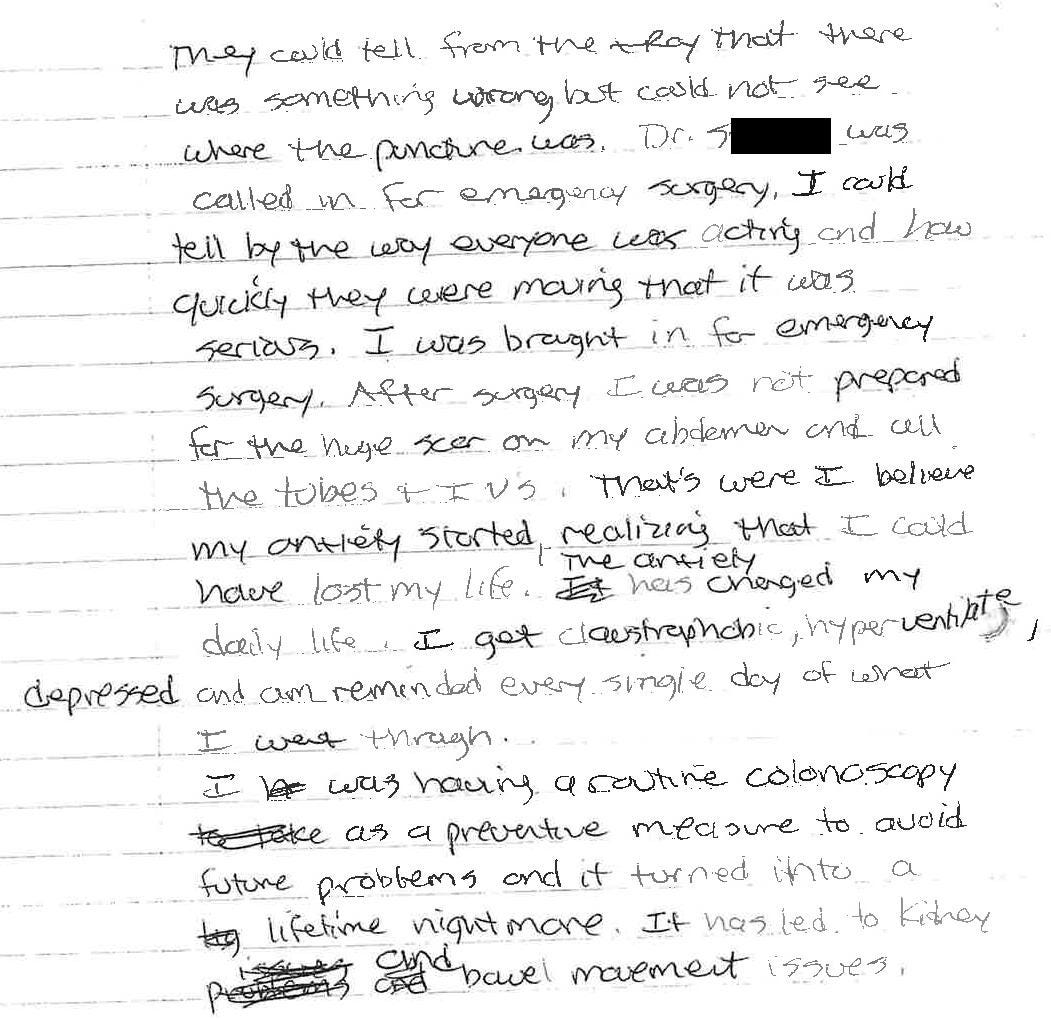 They could tell from the x-Ray that there
was something wrong but could not see
where the puncture was. Dr. S was
called in for emegency surgery. I could
tell by the way everyone was acting and how
quickly they were moving that it was
serious. I was brought in for emergency
surgery. After surgery I was not prepared
for the huge scar on my abdomen and all
the tubes + IVs. That's were I believe
my antiety started, realizing that I could
have lost my life. The antiety has changed my
daily life. I get claustraphobic, hyperventilate,
depressed and am reminded every single day of what
I went through.
I was having a routine colonoscopy
as a preventive measure to avoid
future problems and it turned into a
lifetime nightmare. It has led to Kidney
and bowel movement issues.